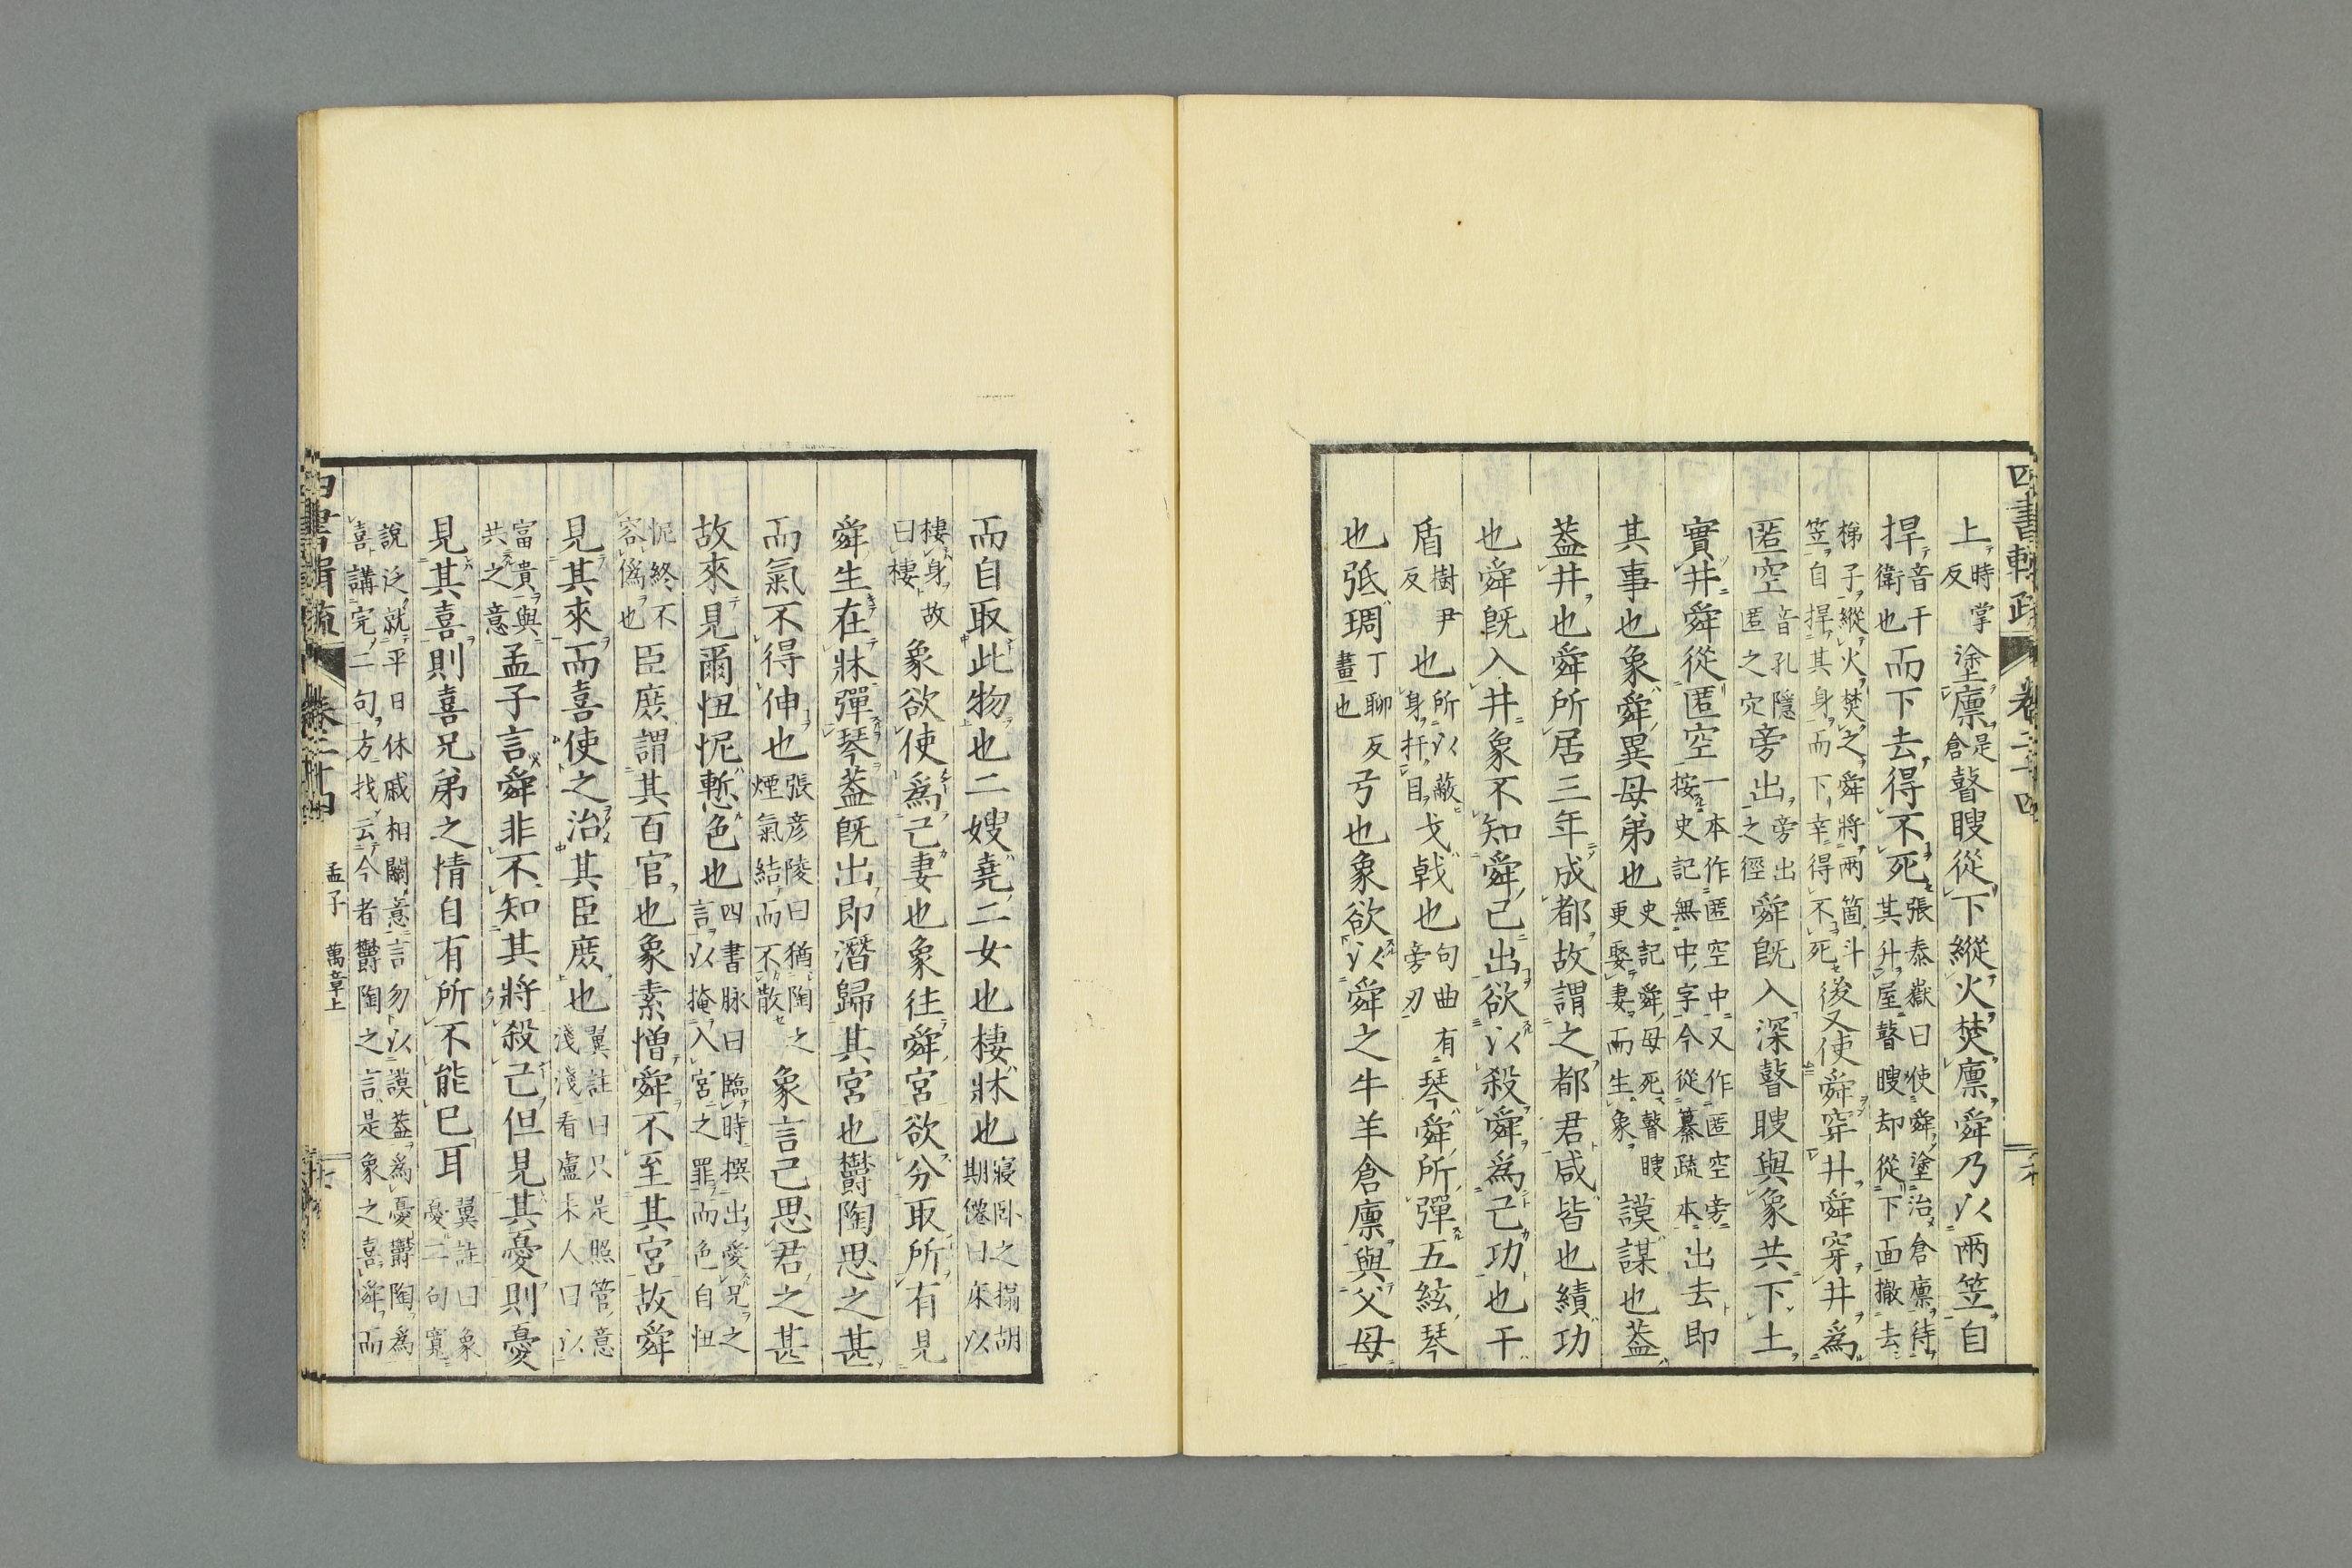 四書輯疏 卷二十四 六
上時掌反塗廩是倉瞽瞍從下縱火焚廩舜乃以兩笠自
捍音干衛也而下去得不死張泰嶽曰使舜塗治倉廩待其升屋瞽瞍却從下面撤去
梯子縱火焚之舜將兩箇斗笠自捍其身而下幸得不死後又使舜穿井舜穿井爲
匿空音孔隱匿之穴旁出旁出之徑舜既入深瞽瞍與象共下土
實井舜從匿空一本作匿空中又作匿空旁按史記無中字今從纂疏本出去即
其事也象舜異母弟也史記舜母死瞽瞍更娶妻而生象謨謀也蓋
蓋井也舜所居三年成都故謂之都君咸皆也績功
也舜既入井象不知舜已出欲以殺舜爲己功也干
盾樹尹反也所以蔽身扞目戈戟也句曲有旁刃琴舜所彈五絃琴
也弤琱丁聊反畫也弓也象欲以舜之牛羊倉廩與父母
而自取此物也二嫂堯二女也棲牀也寢卧之搨胡期僊曰床以
棲身故曰棲象欲使爲己妻也象往舜宮欲分取所有見
舜生在牀彈琴蓋既出即潛歸其宮也鬱陶思之甚
而氣不得伸也張彦陵曰猶陶之煙氣結而不散象言己思君之甚
故來見爾忸怩慙色也四書脉曰臨時撰出愛兄之言以掩入宮之罪而色自忸
怩終不容僞也臣庶謂其百官也象素憎舜不至其宮故舜
見其來而喜使之治其臣庶也翼註曰只是照管意淺淺看盧未人曰以
富貴與共之意孟子言舜非不知其將殺己但見其憂則憂
見其喜則喜兄弟之情自有所不能已耳翼註曰象憂二句寬
說泛就平日休戚相關意言勿以謨蓋爲憂鬱陶爲喜講完二句方找云今者鬱陶之言是象之喜舜而
四書輯疏 卷二十四 孟子 萬章上 七